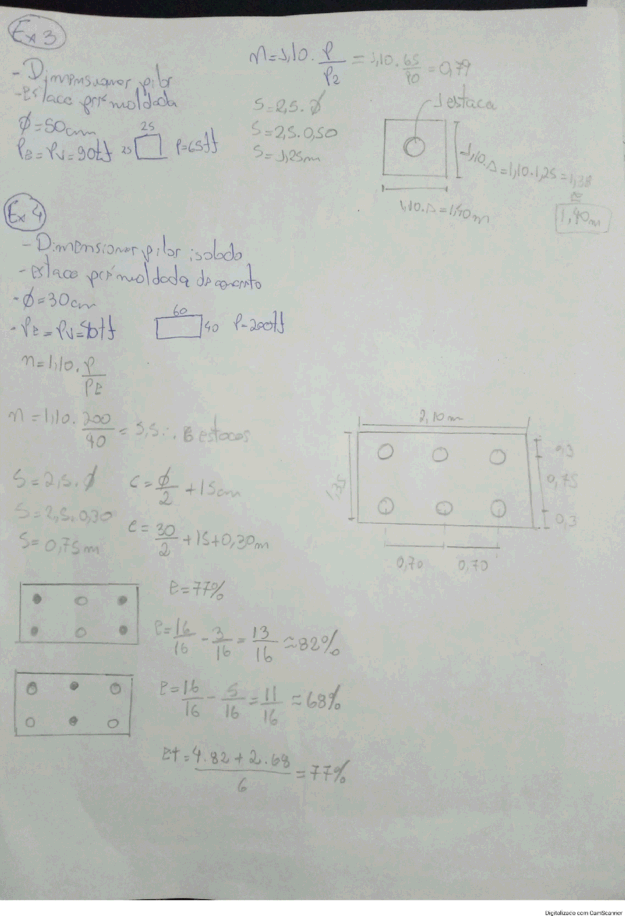 Ex 3
- Dimensionar pilar
- estaca pré moldada
Ø = 50cm
PE = PU = 90tf
25
25
P=65tf
n = 1,10 . P/PE = 1,10 . 65/90 = 0,79
S = 2,5 . Ø
S = 2,5 . 0,50
S = 1,25m
1 estaca
1,10.Δ = 1,10 . 1,25 = 1,38
1,40m
1,10.Δ = 1,40m
Ex. 4
- Dimensionar pilar isolado
- estaca pré moldada de concreto
- Ø = 30cm
- PE = PU = 40tf
60
40
P = 200tf
n = 1,10 . P/PE
n = 1,10 . 200/40 = 5,5 ∴ 6 estacas
S = 2,5 . Ø
S = 2,5 . 0,30
S = 0,75m
C = Ø/2 + 15cm
C = 30/2 + 15 + 0,30m
2,10m
1,35
0,75
0,3
0,70
0,70
e = 77%
e = 16/16 - 3/16 = 13/16 ≈ 82%
e = 16/16 - 5/16 = 11/16 ≈ 68%
et = 4.82 + 2.68/6 = 77%
Digitalizado com CamScanner